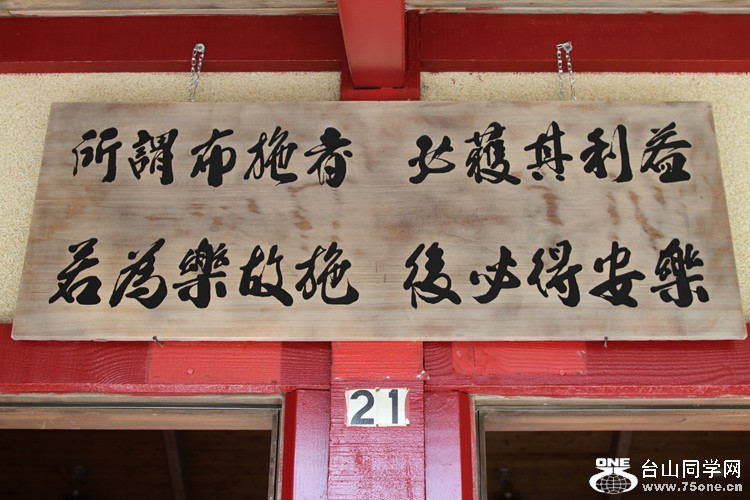 所謂布施者 必獲其利益
若為樂故施 後必得安樂
21
ONE
台山同学网
www.75one.cn